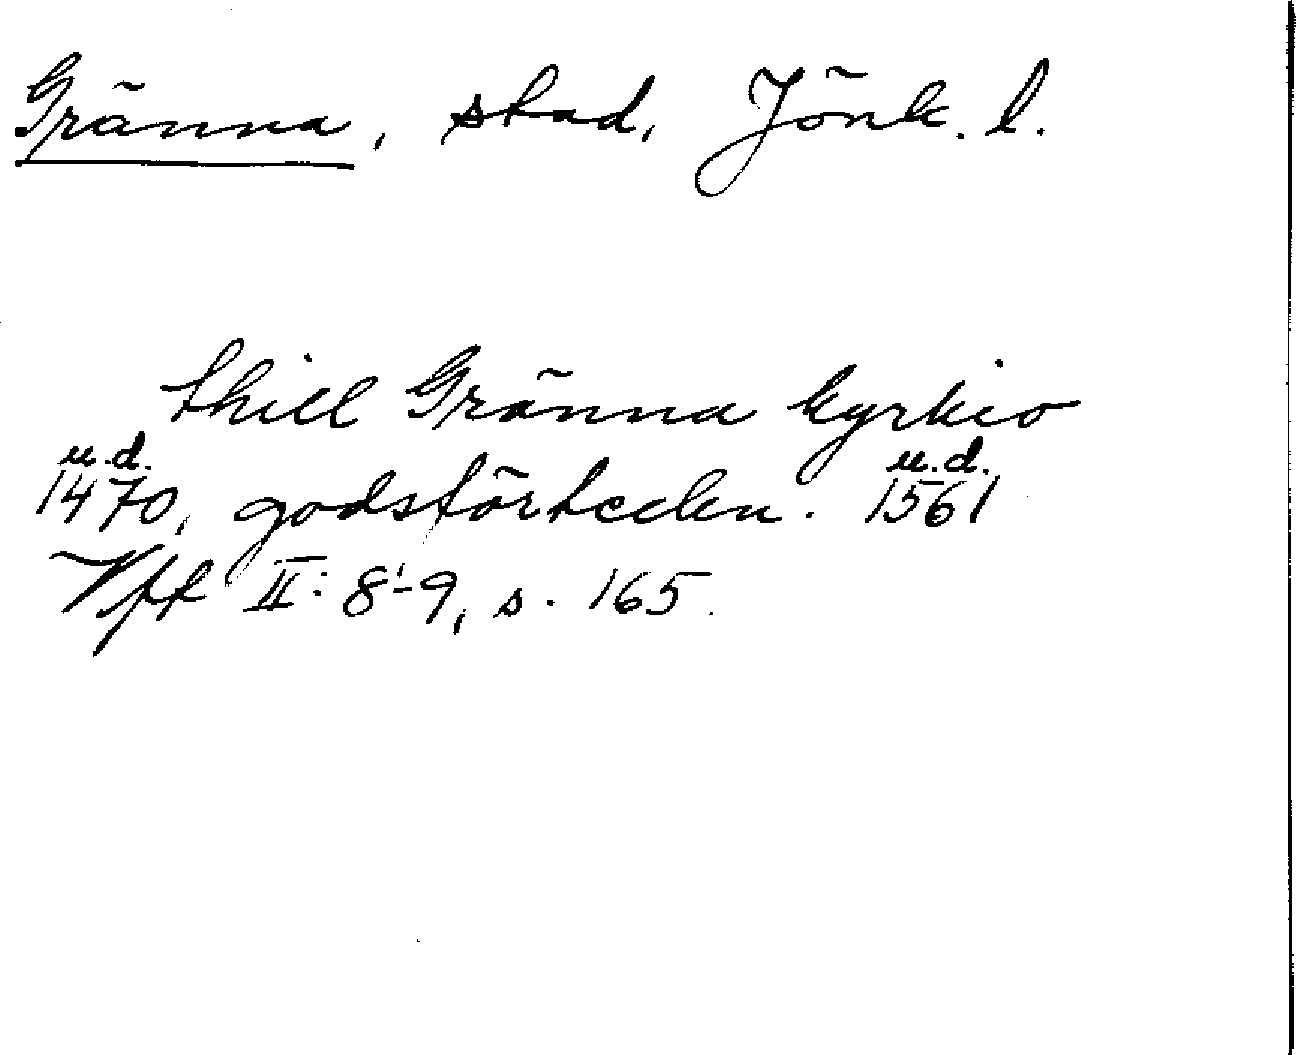 Gränna, stad, Jönk. l.
thill Gränna kyrkio
u.d. u.d.
1470, godsförteckn. 1561
Vff II: 8-9, s. 165.